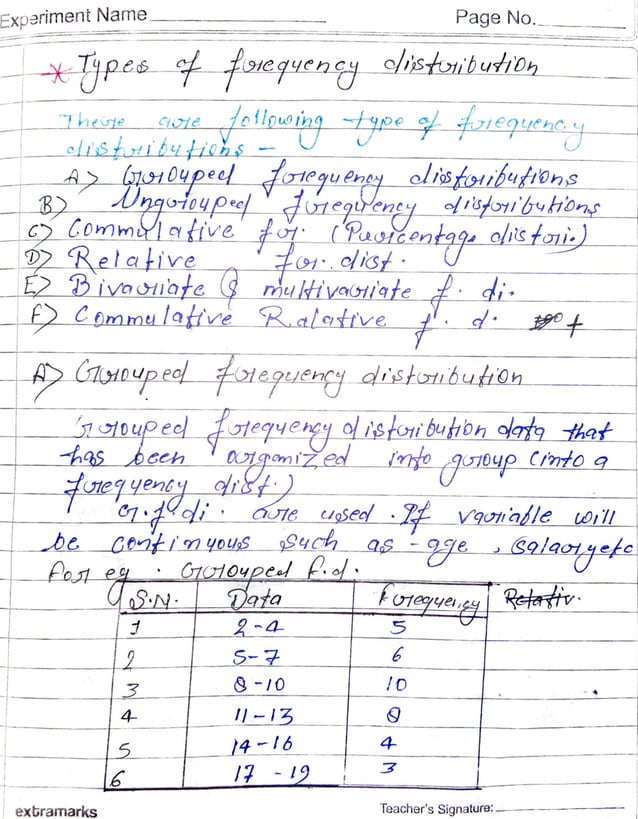 Experiment Name
Page No.
* Types of frequency distribution
There are following type of frequency
distributions -
A> Grouped frequency distributions
B> Ungrouped frequency distributions
C> Commulative fr. (Parcentage distri.)
D> Relative fr. dist.
E> Bivariate & multivariate f. di.
F> Commulative Ralative f. d.
A> Grouped frequency distribution
Grouped frequency distribution data that
has been organized into group (into a
frequency dist.)
G.f.di. are used. If variable will
be continuous such as - age, salary etc
For eg. Grouped f.d.
S.N. Data Frequency Relativ.
1 2-4 5
2 5-7 6
3 8-10 10
4 11-13 8
5 14-16 4
6 17-19 3
extramarks
Teacher's Signature: